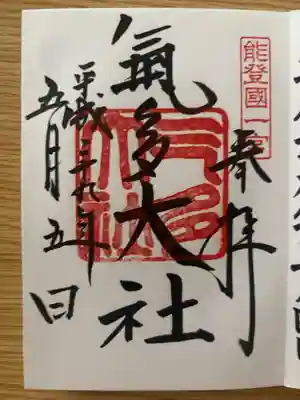 能登國一宮
奉拝
氣多大社
平成二九年
五月五日